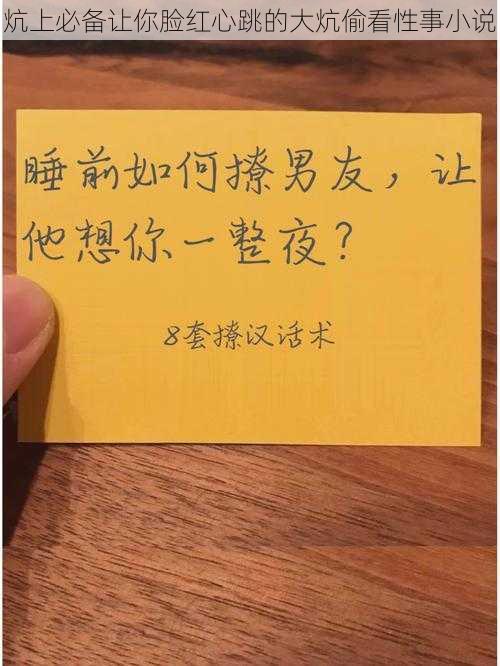 炕上必备让你脸红心跳的大炕偷看性事小说
睡前如何撩男友，让
他想你一整夜？
8套撩汉话术